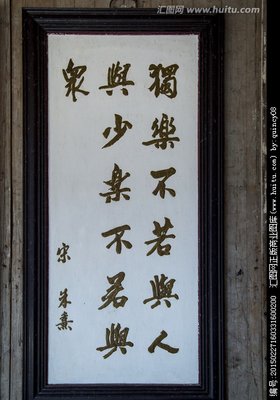 獨樂不若與人
與少樂不若與
眾
宋 朱熹
汇图网 www.huitu.com
编号:20150227160331600200 汇图网正版商业图库 (www.huitu.com) by:quincy08